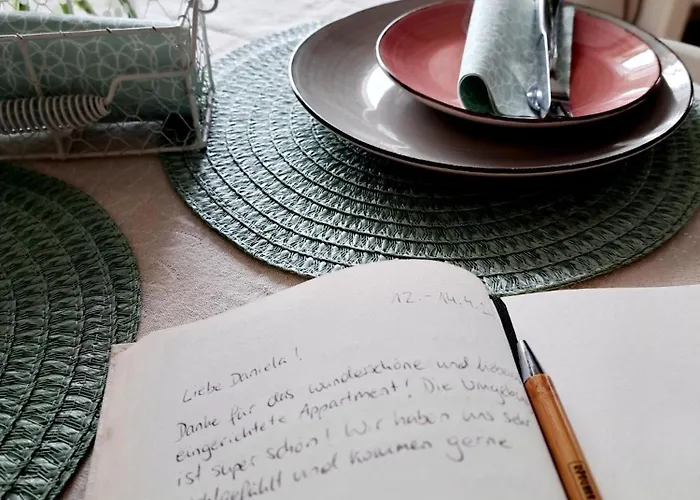 12. - 14.4.2
Liebe Daniela!
Danke für das wunderschöne und
eingerichtete Appartment! Die Umgebun
ist super schön! Wir haben uns sehr
lgefühlt und kommen gerne